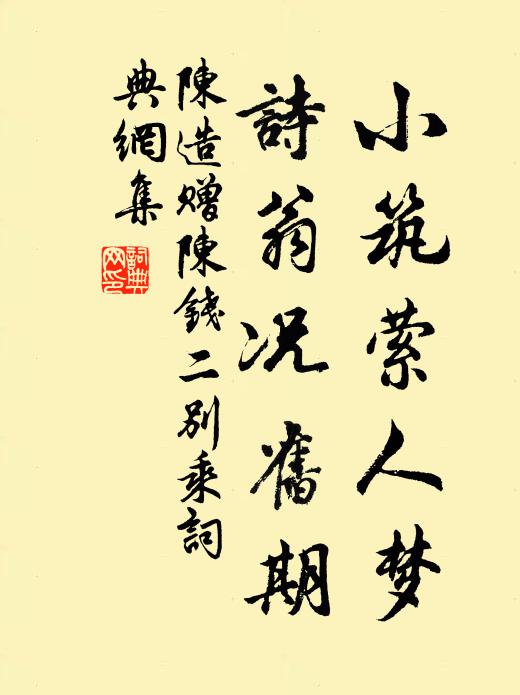 小筑萦人梦
詩翁况舊期
陳造赠陳錢二别乘詞
典網集
詞典网印